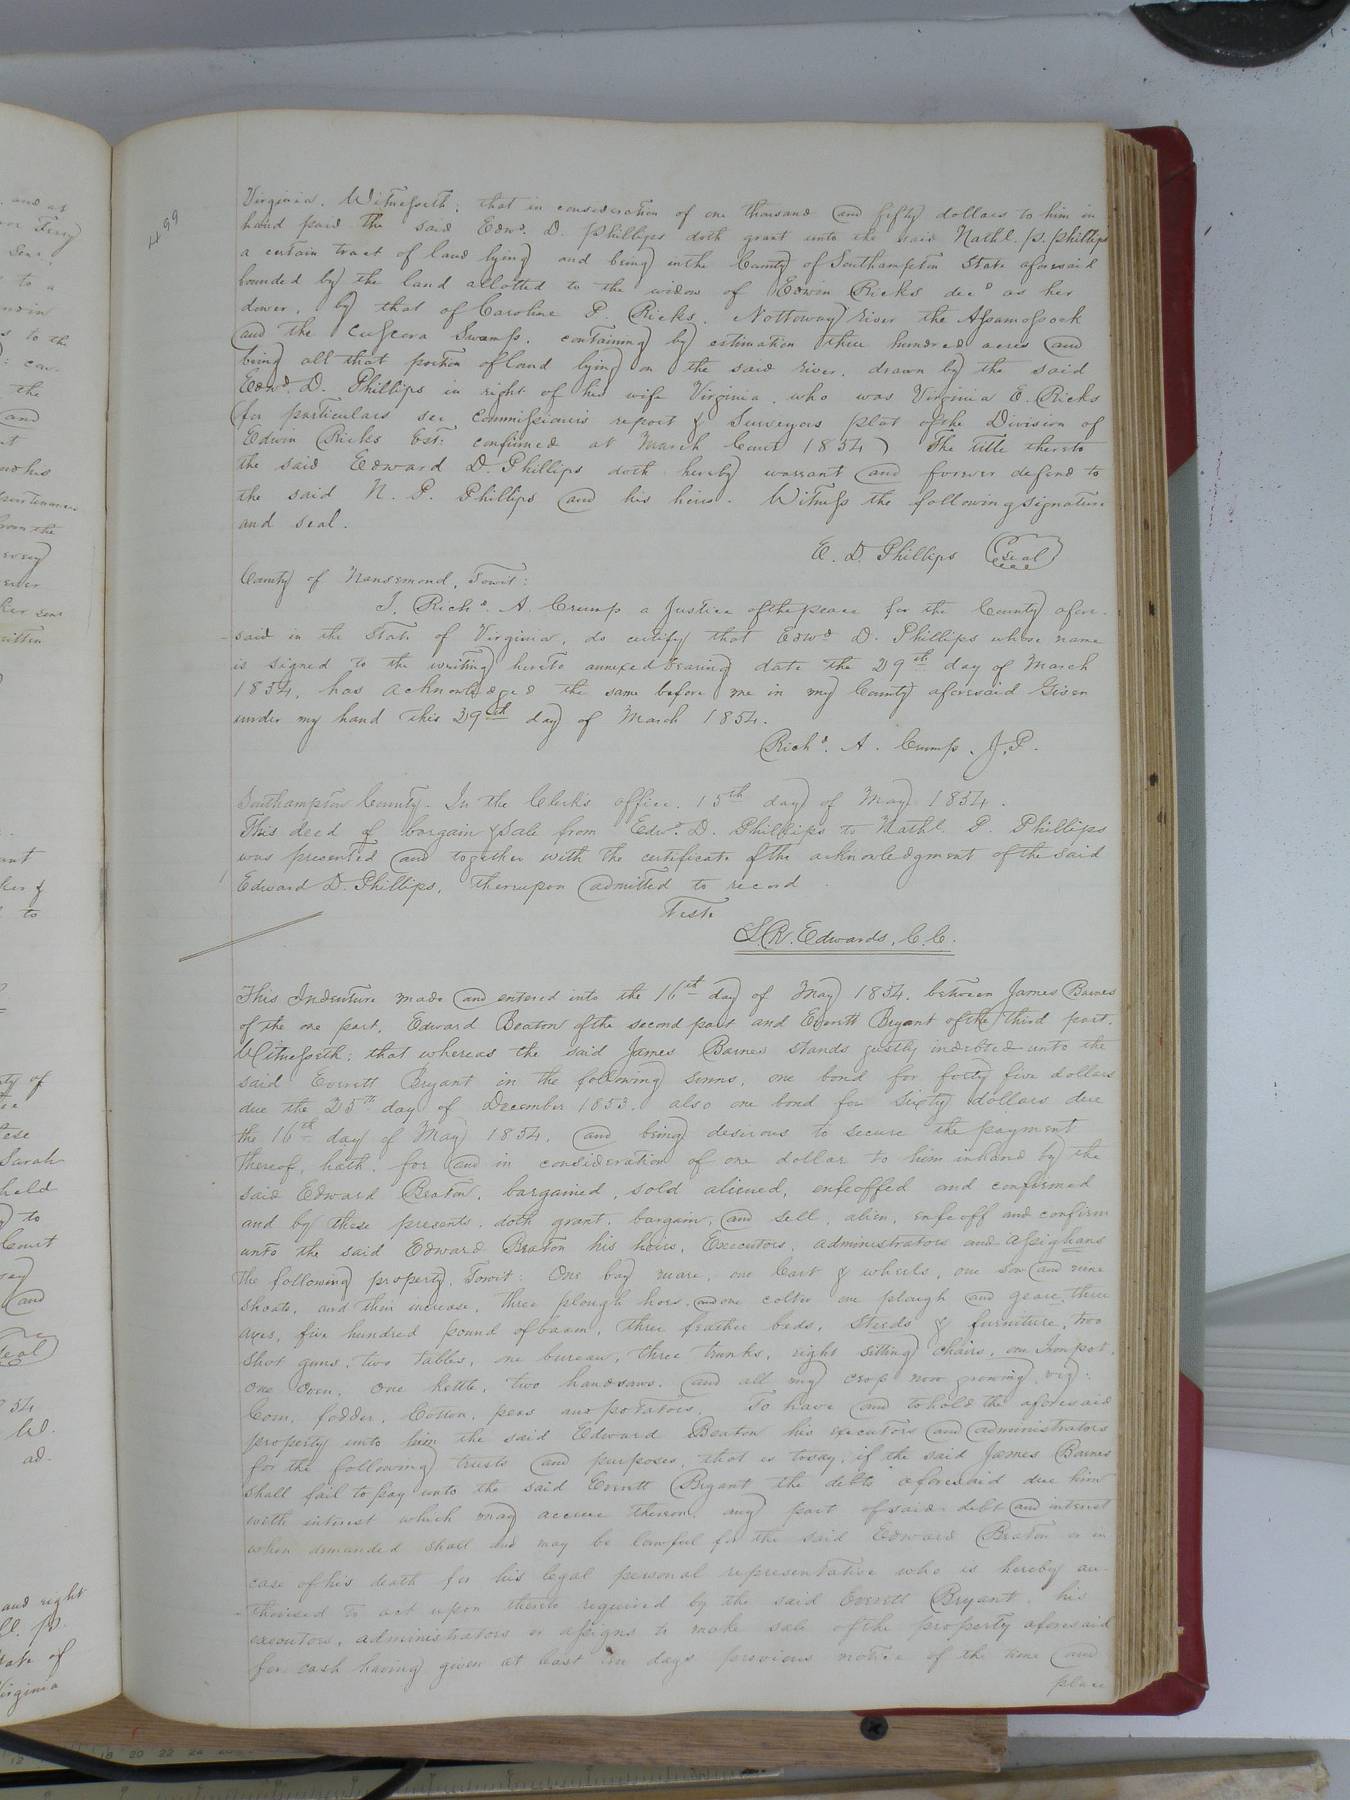 499
Virginia. Witnesseth; that in consideration of one thousand and fifty dollars to him in
hand paid the said Edwd. D. Phillips doth grant unto the said Nathl. P. Phillips
a certain tract of land lying and being in the County of Southampton State aforesaid
bounded by the land allotted to the widow of Edwin Ricks decd as her
dower, by that of Caroline P. Ricks, Nottoway river the Assamosock
and the Swamp, containing by estimation three hundred acres and
being all that portion of land lying on the said river, drawn by the said
Edwd. D. Phillips in right of his wife Virginia, who was Virginia E. Ricks
(for particulars see Commissioners report & Surveyors plat of the Division of
Edwin Ricks Est: confirmed at March Court 1854) The title thereto
the said Edward D. Phillips doth hereby warrant and forever defend to
the said N. P. Phillips and his heirs. Witness the following signature
and seal.
E. D. Phillips Seal
County of Nansemond, Towit:
I, Richd. A. Crump a Justice of the peace for the County afore-
said in the State of Virginia, do certify that Edwd D. Phillips whose name
is signed to the writing hereto annexed bearing date the 29th day of March
1854, has acknowledged the same before me in my County aforesaid Given
under my hand this 29th day of March 1854.
Richd. A. Crump, J.P.
Southampton County. In the Clerk's office. 15th day of May 1854.
This deed of bargain & Sale from Edwd. D. Phillips to Nathl. P. Phillips
was presented and together with the certificate of the acknowledgment of the said
Edward D. Phillips, thereupon admitted to record.
Teste
L R. Edwards, C. C.
This Indenture made and entered into the 16th day of May 1854, between James Barnes
of the one part, Edward Beaton of the second part and Everett Bryant of the third part.
Witnesseth; that whereas the said James Barnes stands justly indebted unto the
said Everett Bryant in the following sums, one bond for forty five dollars
due the 25th day of December 1853, also one bond for Sixty dollars due
the 16th day of May 1854, and being desirous to secure the payment
thereof, hath, for and in consideration of one dollar to him in hand by the
said Edward Beaton, bargained, sold aliened, enfeoffed and confirmed
and by these presents, doth grant, bargain, and sell, alien, enfeoff and confirm
unto the said Edward Beaton his heirs, Executors, administrators and assigns
the following property, Towit: One bay mare, one Cart & wheels, one sow and nine
shoats, and their increase, three plough hoes, and one colter one plough and geare, three
axes, five hundred pound of bacon, three feather beds, Steeds & furniture, two
shot guns, two tables, one bureau, three trunks, eight sitting chairs, one Iron pot,
one Oven, One kettle, two handsaws, and all my crop now growing, viz:
Corn, fodder, Cotton, peas and potatoes. To have and to hold the aforesaid
property unto him the said Edward Beaton his executors and administrators
for the following trusts and purposes, that is to say, if the said James Barnes
shall fail to pay unto the said Everett Bryant the debts aforesaid due him
with interest which may accrue thereon, any part of said debt and interest
when demanded shall and may be lawful for the said Edward Beaton or in
case of his death for his legal personal representative who is hereby au-
thorised to act upon thereto required by the said Everett Bryant, his
executors, administrators or assigns to make sale of the property aforesaid
for cash having given at least ten days previous notice of the time and
place